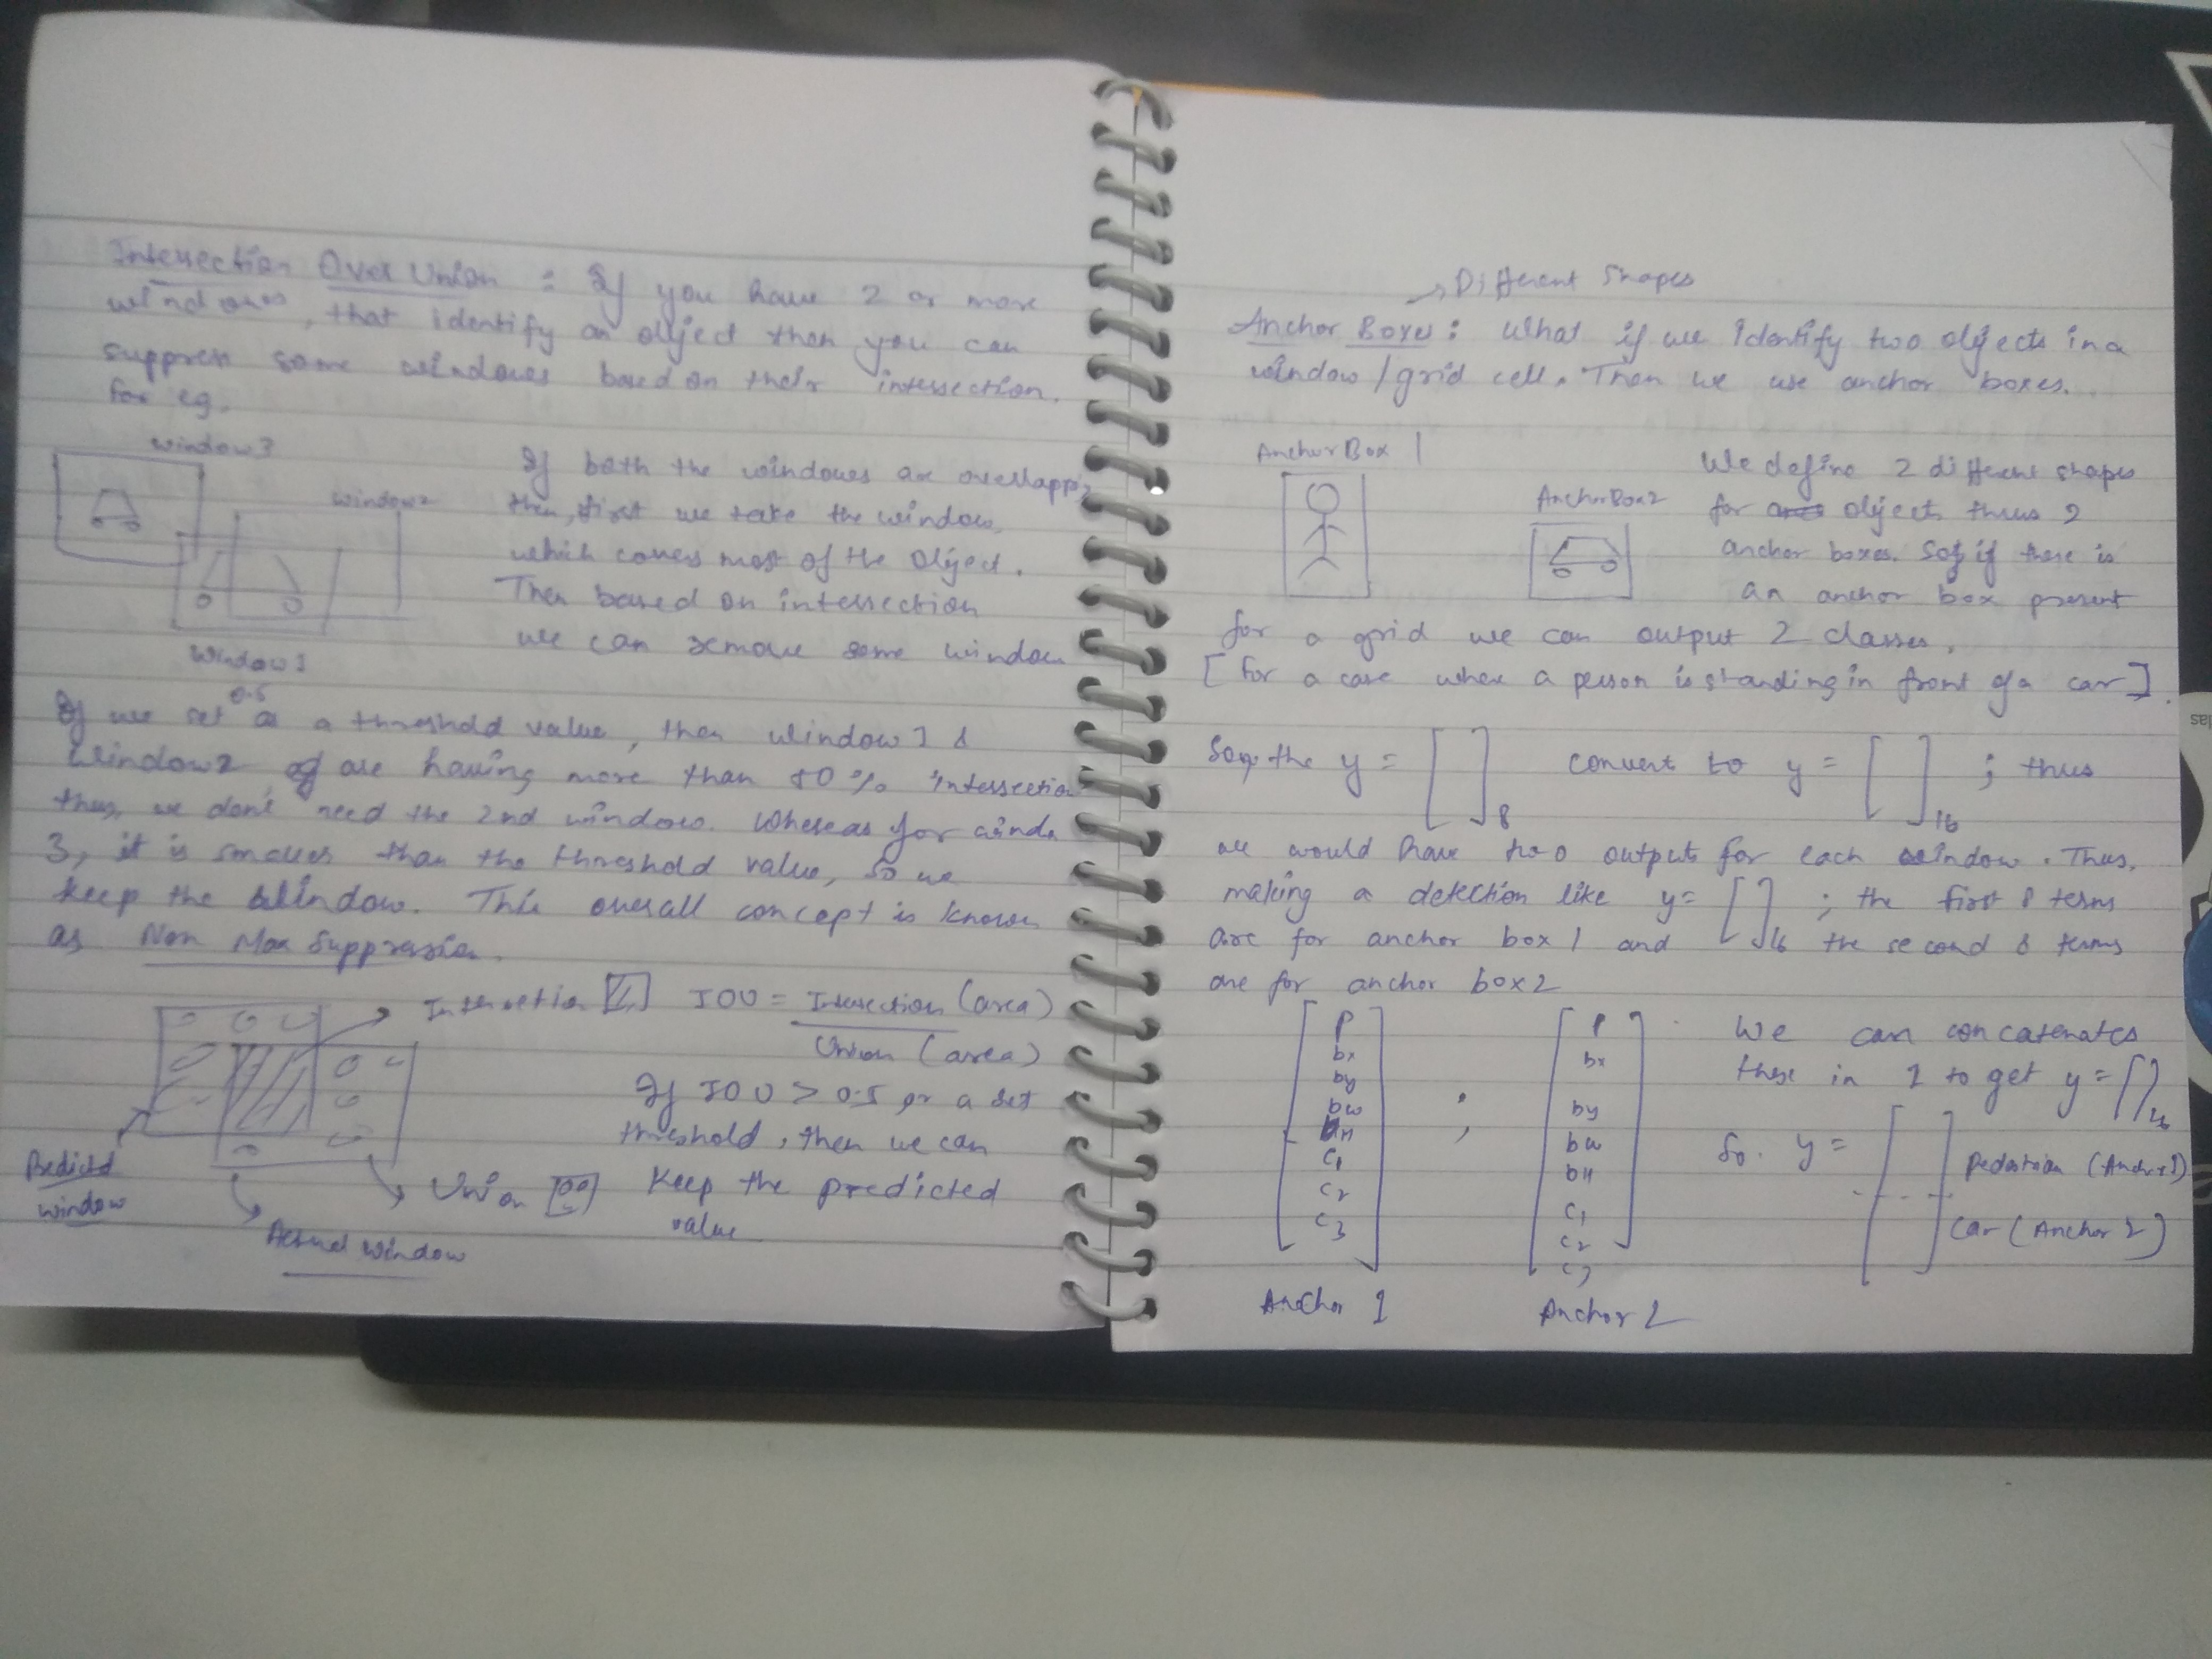 Intersection Over Union : If you have 2 or more
windows, that identify an object then you can
suppress some windows based on their intersection.
For eg.
Window3
Window2
Window1
If both the windows are overlapping
then, first we take the window
which covers most of the Object.
Then based on intersection
we can remove some window
0.5
If we set as a threshold value, then Window 1 &
Window2 are having more than 50% intersection
thus, we don't need the 2nd window. Whereas for windo
3, it is smaller than the threshold value, so we
keep the window. This overall concept is known
as Non Max Suppression.
Intersection
IOU = Intersection (area)
Union (area)
If IOU > 0.5 or a set
threshold, then we can
Keep the predicted
value
Predicted
window
Union
Actual Window
→ Different Shapes
Anchor Boxes : What if we identify two objects in a
window/grid cell. Then we use anchor boxes.
Anchor Box 1
Anchor Box2
We define 2 different shapes
for objects thus 2
anchor boxes. So, if there is
an anchor box present
for a grid we can output 2 classes.
[For a case where a person is standing in front of a car].
Say the y = [ ]8 convert to y = [ ]16 ; thus
we would have two outputs for each window. Thus,
making a detection like y= [ ]16 ; the first 8 terms
are for anchor box 1 and the second 8 terms
are for anchor box2
P
bx
by
bw
bH
C1
C2
C3
Anchor 1
;
P
bx
by
bw
bH
C1
C2
C3
Anchor 2
We can concatenate
these in 1 to get y = [ ]16
So. y = [ ]
Pedestrian (Anchor 1)
Car (Anchor 2)
las